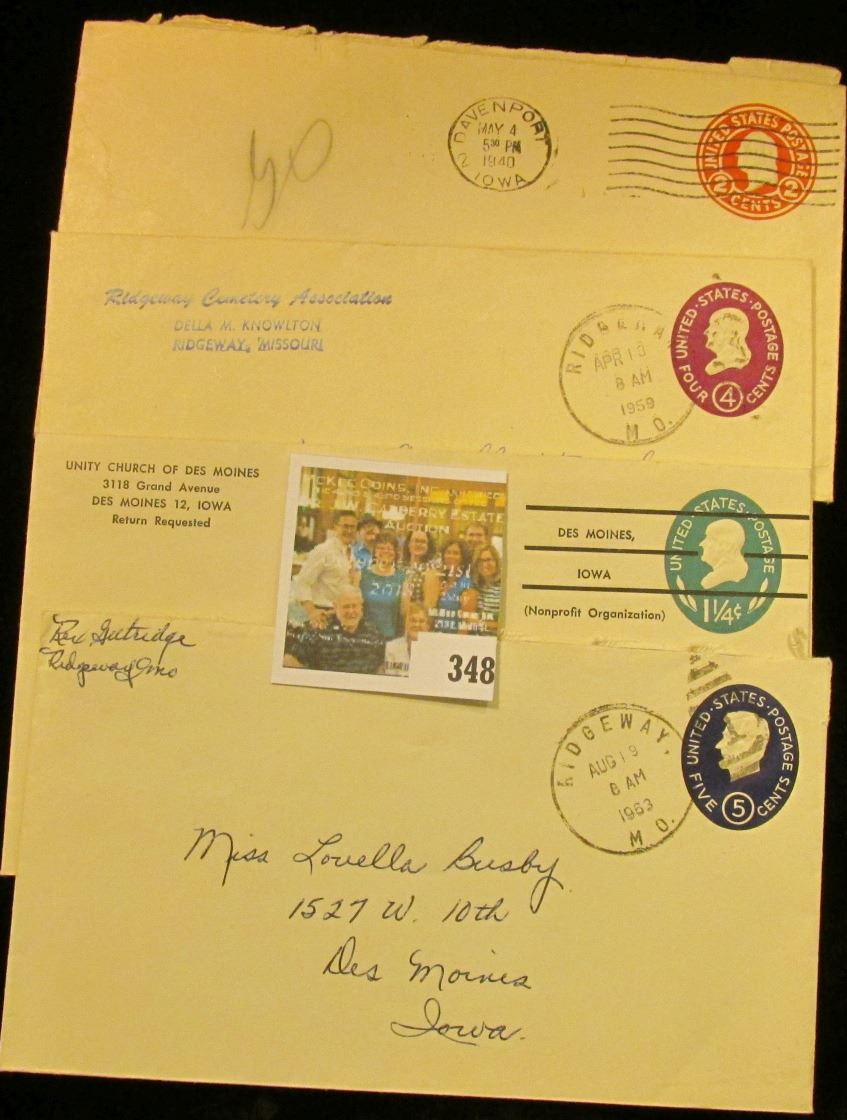 DAVENPORT
MAY 4
5 30 PM
1940
2 IOWA
UNITED STATES POSTAGE
2 CENTS 2
Ridgeway Cemetery Association
DELLA M. KNOWLTON
RIDGEWAY, MISSOURI
APR 13
8 AM
1959
MO.
UNITED·STATES·POSTAGE
FOUR 4 CENTS
UNITY CHURCH OF DES MOINES
3118 Grand Avenue
DES MOINES 12, IOWA
Return Requested
DES MOINES,
IOWA
(Nonprofit Organization)
UNITED STATES POSTAGE
1¼¢
COINS, INC.
ESTATE
AUCTION
348
Ridgeway, Mo
RIDGEWAY,
AUG 19
8 AM
1963
MO.
UNITED·STATES·POSTAGE
FIVE 5 CENTS
Miss Lovella Busby
1527 W. 10th
Des Moines
Iowa.